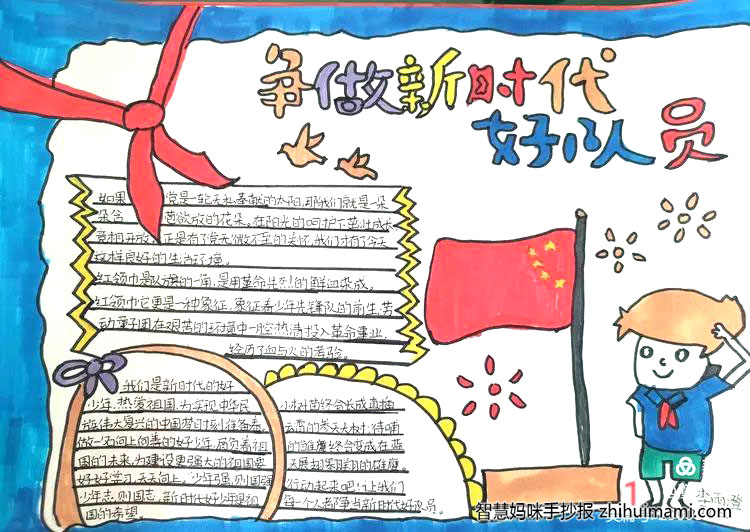 争做新时代
好队员
如果 党是一轮无私奉献的太阳,那我们就是一朵
朵含 苞欲放的花朵。在阳光的呵护下茁壮成长,
竞相开放。正是有了党无微不至的关怀,我们才有了今天
这样良好的生活环境。
红领巾是队旗的一角,是用革命先烈的鲜血染成。
红领巾它更是一种象征,象征着少年先锋队的前生,劳
动童子团在艰苦的环境中一腔热情投入革命事业,
经历了血与火的考验。
我们是新时代的好
少年,热爱祖国,为实现中华民
族伟大复兴的中国梦时刻准备着。
做一名向上向善的好少年,肩负着祖
国的未来,为建设更强大的祖国要
好好学习,天天向上。少年强,则国强
少年志,则国志,新时代好少年是祖
国的希望。
小树苗终会长成直插
云霄的参天大树;待哺
的雏鹰终会变成在蓝
天展翅翱翔的雄鹰。
行动起来吧!让我们
每一个人都争当新时代好队员。
1
李雨
智慧妈咪手抄报 zhihuimami.com